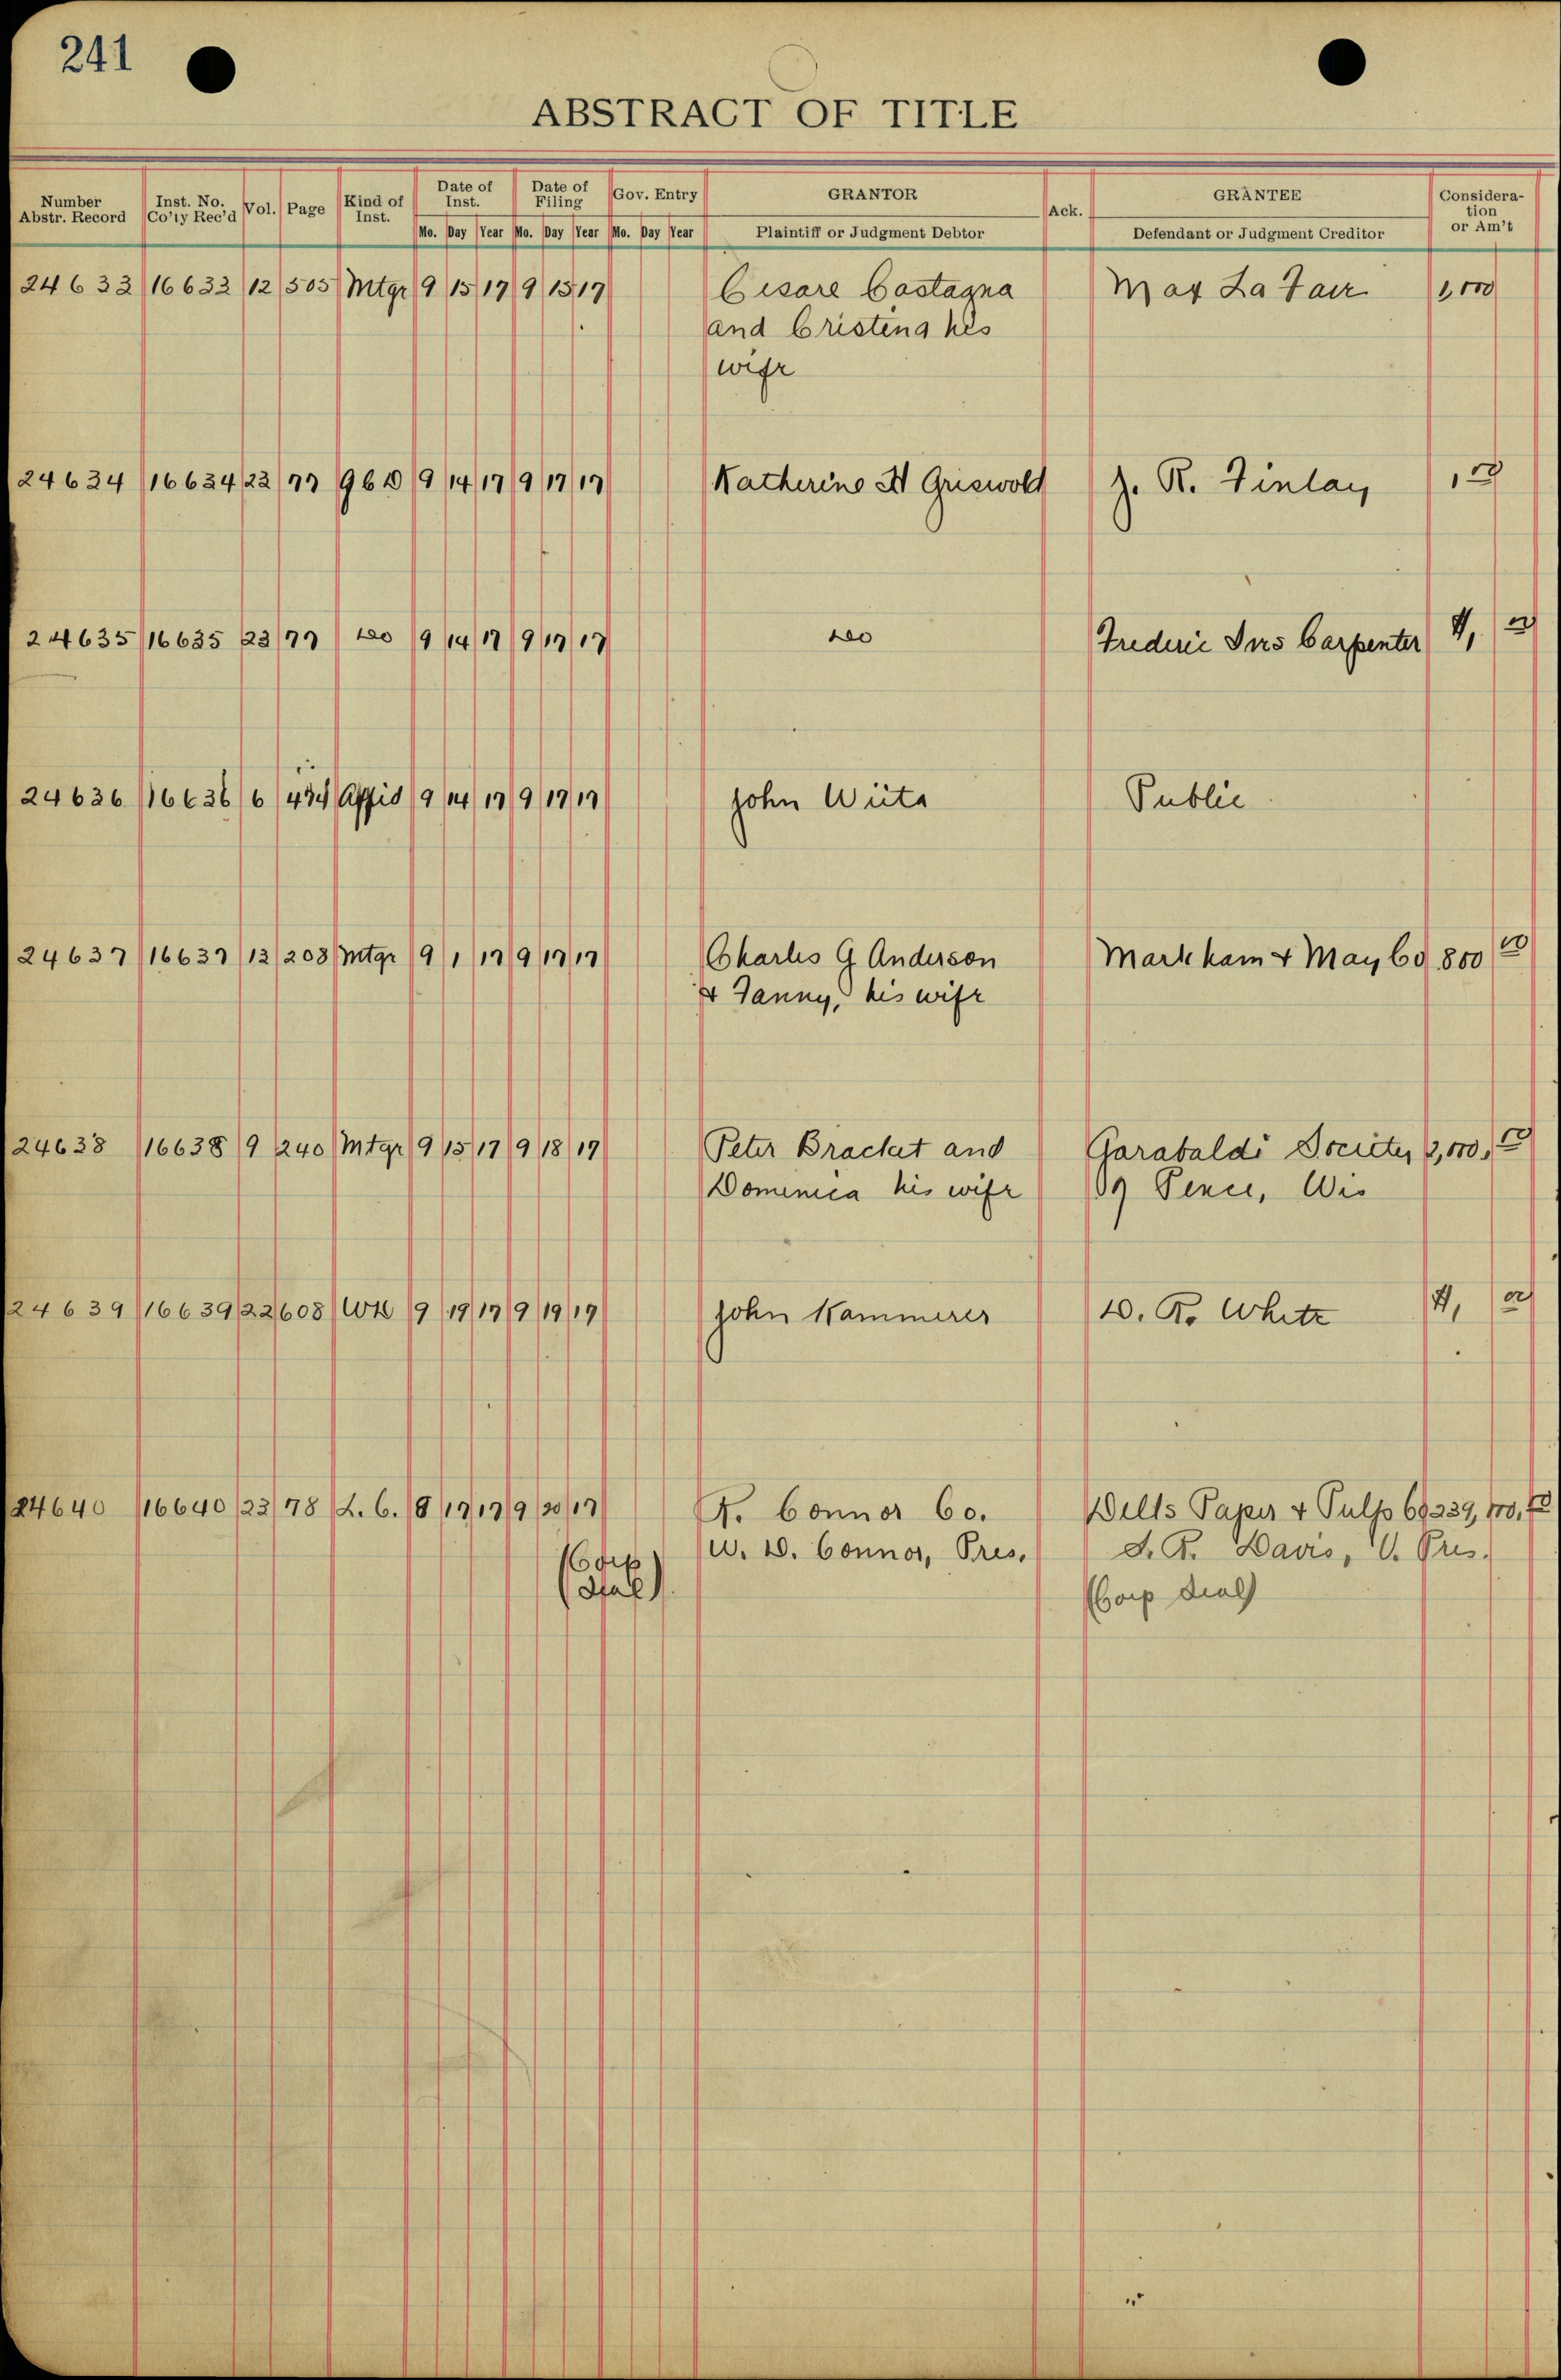 241
ABSTRACT OF TITLE
Number Abstr. Record Inst. No. Co'ty Rec'd Vol. Page Kind of Inst. Date of Inst. Date of Filing Gov. Entry GRANTOR Ack. GRANTEE Considera-tion or Am't
Mo. Day Year Mo. Day Year Mo. Day Year Plaintiff or Judgment Debtor Defendant or Judgment Creditor
24633 16633 12 505 Mtge 9 15 17 9 15 17 Cesare Castagna May La Fave 1,000
and Cristina his
wife
24634 16634 23 77 2CD 9 14 17 9 17 17 Katherine H Griswold J. R. Finlay 1,00
24635 16635 23 77 do 9 14 17 9 17 17 do Frederic Ives Carpenter 1, 00
24636 16636 6 434 Affid 9 14 17 9 17 17 John Wiita Public
24637 16637 13 208 Mtge 9 1 17 9 17 17 Charles G Anderson Markham & May Co 800 00
& Fanny, his wife
24638 16638 9 240 Mtge 9 15 17 9 18 17 Peter Brackat and Garabaldi Society 2,000,00
Domenica his wife Of Pence, Wis
24639 16639 22 608 WD 9 19 17 9 19 17 John Kammerer D. R. White 1, 00
24640 16640 23 78 L.C. 8 17 17 9 20 17 R. Connor Co. Wells Paper & Pulp Co 239,000.00
W. D. Connor, Pres. S. R. Davis, V. Pres.
(Corp
Seal)
(Corp Seal)